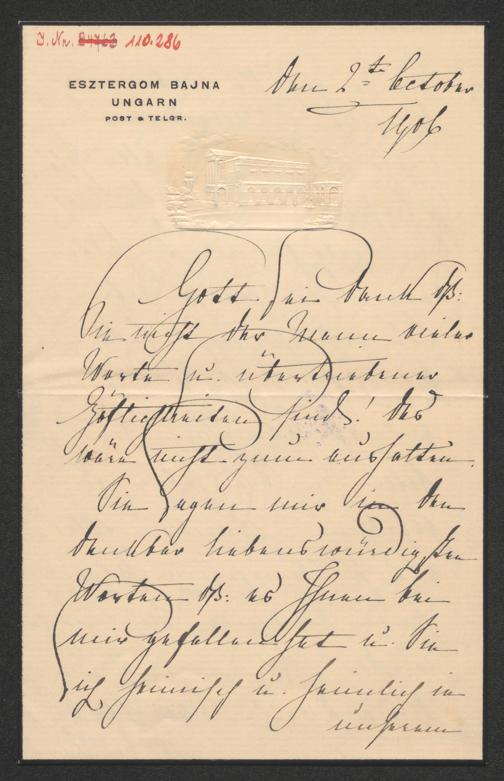 J. Nr. 84763 110.286
ESZTERGOM BAJNA
UNGARN
POST & TELGR.
Den 2te October
1906
Gott sei Dank dß:
Sie nicht der Mann vieler
Worte u. übertriebener
Höflichkeiten sind! Das
wäre nicht zum aushalten.
Sie sagen mir in den
denkbar liebenswürdigsten
Worten dß: es Ihnen bei
mir gefallen hat u. Sie
sich heimisch u. heimlich in
unserem